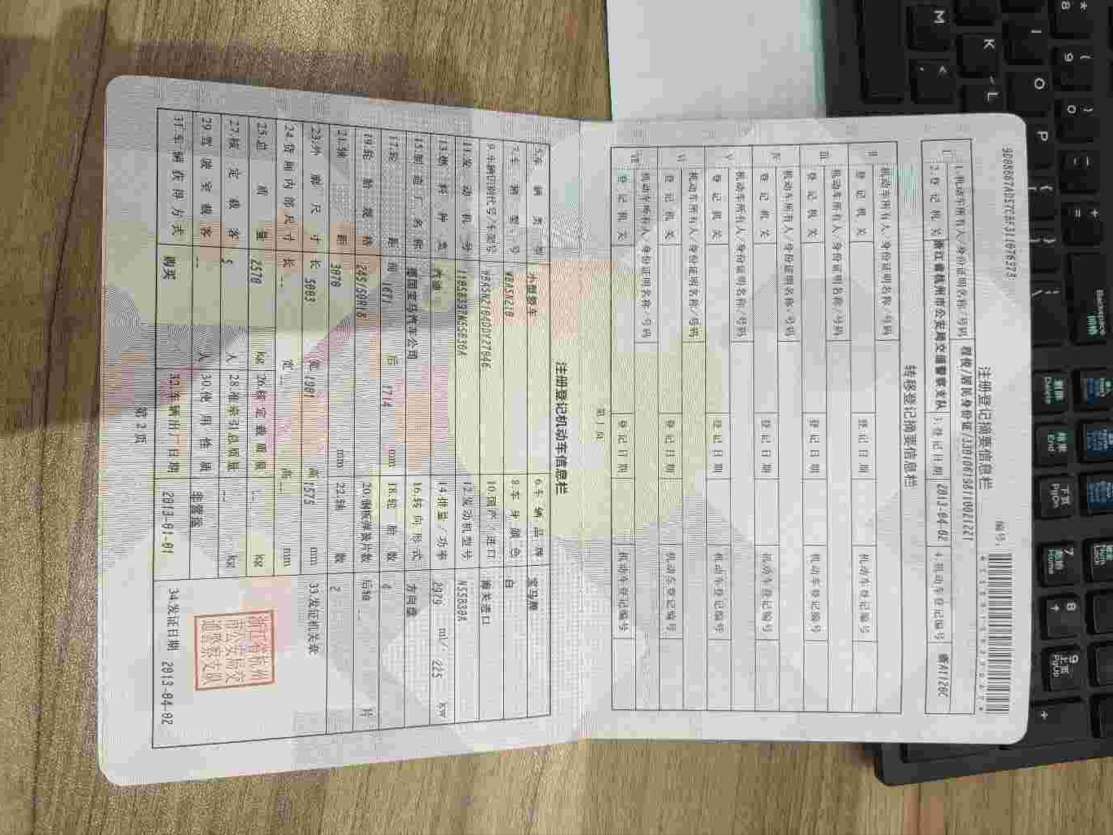 注册登记摘要信息栏
编号:
1.机动车所有人/身份证明名称/号码
2.登记机关 浙江省杭州市公安局交通警察支队 3.登记日期 2013-04-02 4.机动车登记编号
转移登记摘要信息栏
II 机动车所有人/身份证明名称/号码
登记机关 登记日期 机动车登记编号
III 机动车所有人/身份证明名称/号码
登记机关 登记日期 机动车登记编号
IV 机动车所有人/身份证明名称/号码
登记机关 登记日期 机动车登记编号
V 机动车所有人/身份证明名称/号码
登记机关 登记日期 机动车登记编号
VI 机动车所有人/身份证明名称/号码
登记机关 登记日期 机动车登记编号
VII 机动车所有人/身份证明名称/号码
登记机关 登记日期 机动车登记编号
第 1 页
注册登记机动车信息栏
5.车辆类型 小型轿车 6.车辆品牌 宝马牌
7.车辆型号 WBASN210 8.车身颜色 白
9.车辆识别代号/车架号 10.国产/进口 海关进口
11.发动机号 12.发动机型号 N55B30A
13.燃料种类 汽油 14.排量/功率 2979 ml/ 225 kw
15.制造厂名称 德国宝马汽车公司 16.转向形式 方向盘
17.轮距 前 后 1714 mm 18.轮胎数 4
19.轮胎规格 20.钢板弹簧片数 后轴 片
21.轴距 3070 mm 22.轴数 2
23.外廓尺寸 长 5003 宽 1901 高 1575 mm
24.货厢内部尺寸 长 -- 宽 -- 高 -- mm
25.总质量 2570 kg 26.核定载质量 -- kg
27.核定载客 5 人 28.准牵引总质量 -- kg
29.驾驶室载客 -- 人 30.使用性质 非营运
31.车辆获得方式 购买 32.车辆出厂日期 2013-01-01
33.发证机关章
浙江省杭州
市公安局交
通警察支队
34.发证日期 2013-04-02
第 2 页